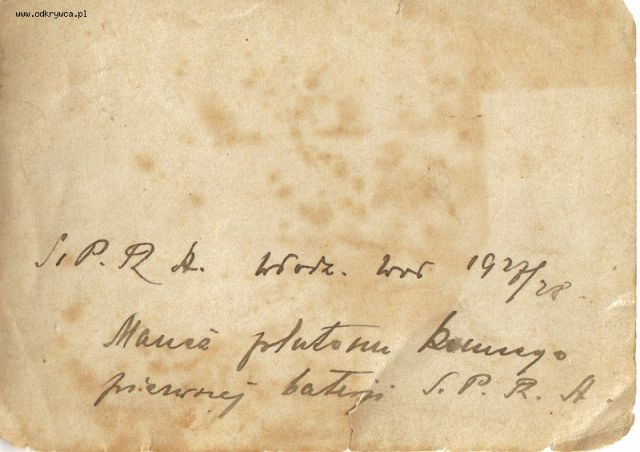 www.odkrywca.pl
S. P. R. A. Włodz. Woł 1927/28.
Maneż plutonu konnego
pierwszej baterji S. P. R. A.